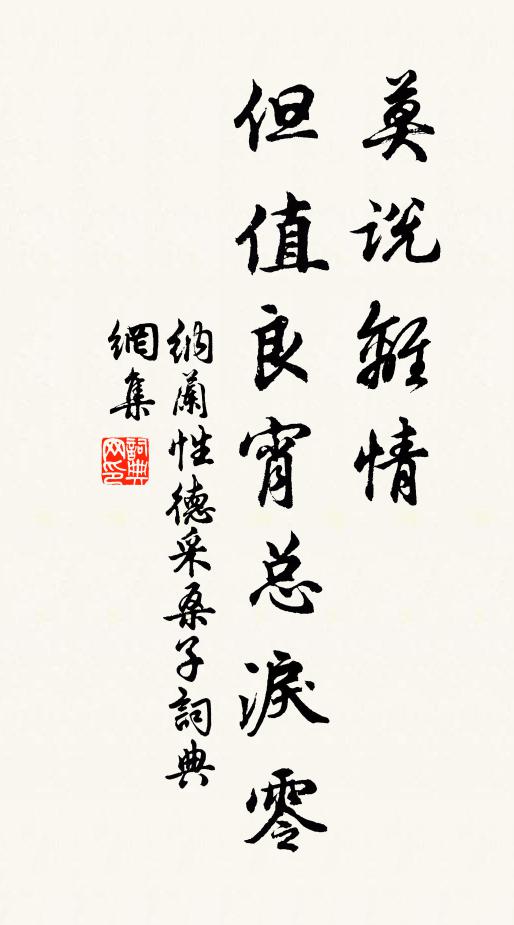 莫说離情
但值良宵总淚零
納蘭性德采桑子詞典
網集
詞典
网印